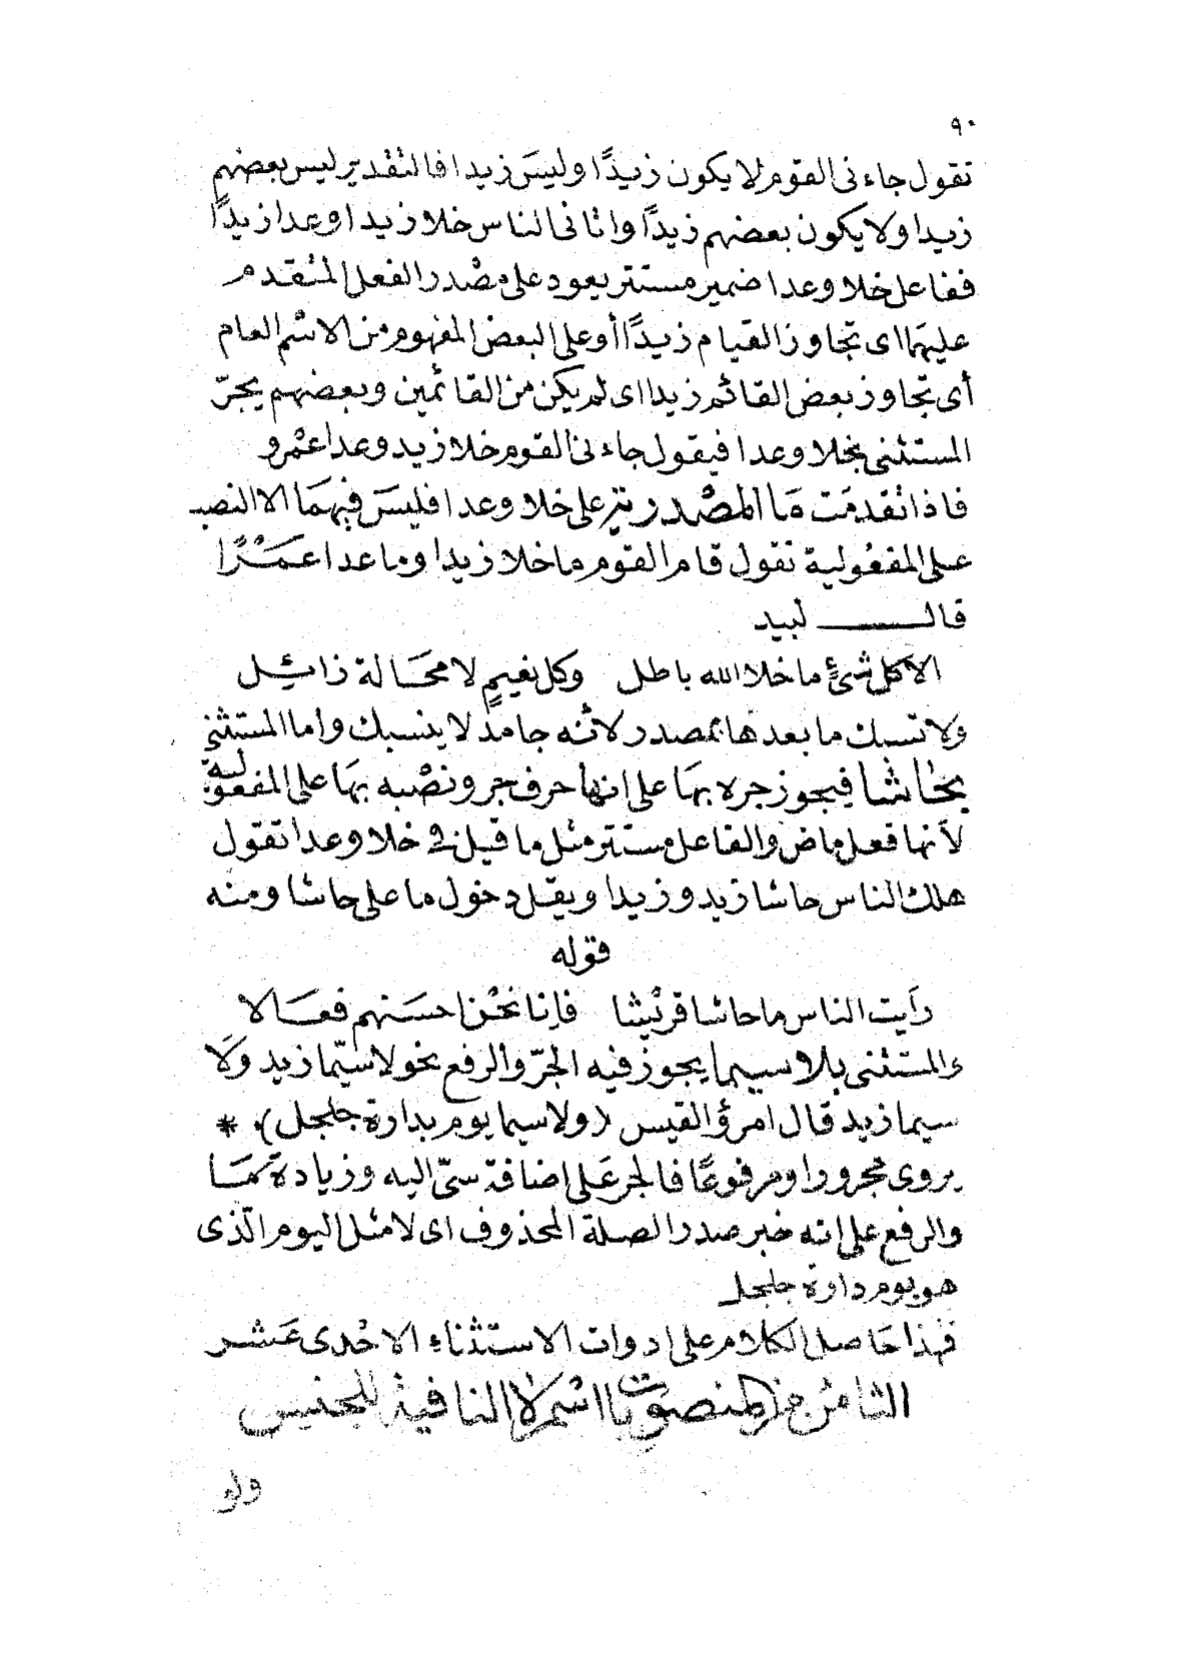 ٩٠
تقول جاءنى القوم لا يكون زيدًا وليسَ زيدا فالتقدير ليس بعضهم
زيدا ولا يكون بعضهم زيدًا واتانى الناس خلا زيدا وعدا زيدًا
ففاعل خلا وعدا ضمير مستتر يعود على مصْدر الفعل المتقدم
عليهَما اى تجاوز القيام زيدًا أو على البعض المفهوم من الاسْم العام
أى تجاوز بعض القائم زيدا اى لم يكن من القائمين وبعضهم يجرّ
المستثنى بخلا وعدا فيقول جاءنى القوم خلا زيد وعدا عمْرو
فاذا تقدمَت مَا المصْدرية على خلا وعدا فليسَ فيهمَا الا النصب
على المفعُولية تقول قام القوم ما خلا زيدا وما عدا عمَــْرًا
قالـــــــ لبيد
الا كل شئٍ ما خلا الله باطل   وكل نعيمٍ لا محَالة زائِل
ولا تسبك ما بعدها بمصدر لانّه جامدٌ لا ينسبك واما المستثنى
بحاشا فيجوز جره بهَا على انها حرف جر ونصْبه بهَا على المفعوليّة
لأنها فعل ماض والفاعل مستتر مثل ما قيل فى خلا وعدا تقول
هلك الناس حاشا زيد وزيدا ويقل دخول ما على حاشا ومنه
قوله
رَأيت الناس ما حاشا قريْشا   فإنا نحْن احسَنهم فعَالا
والمستثنى بلا سيما يجوز فيه الجرّ والرفع نحو لا سيّما زيد ولَا
سيما زيد قال امرؤ القيس (ولا سيما يوم بدارة جلجل). *
يروى مجرورا ومرفوعًا فالجر عَلى اضافة سىّ اليه وزيادة مَا
والرفع على انه خبر صدر الصلة المحذوف اى لا مثل اليوم الّذى
هو يوم دارة جلجل
فهذا حَاصل الكلام على ادوات الاستثناء الاحْدى عَشـر
الثامن من المنصوبات اسْم لا النافية للجنس
ولو